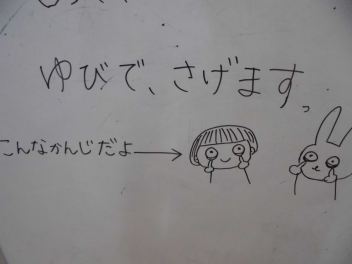 ゆびで、さげます。
こんなかんじだよ